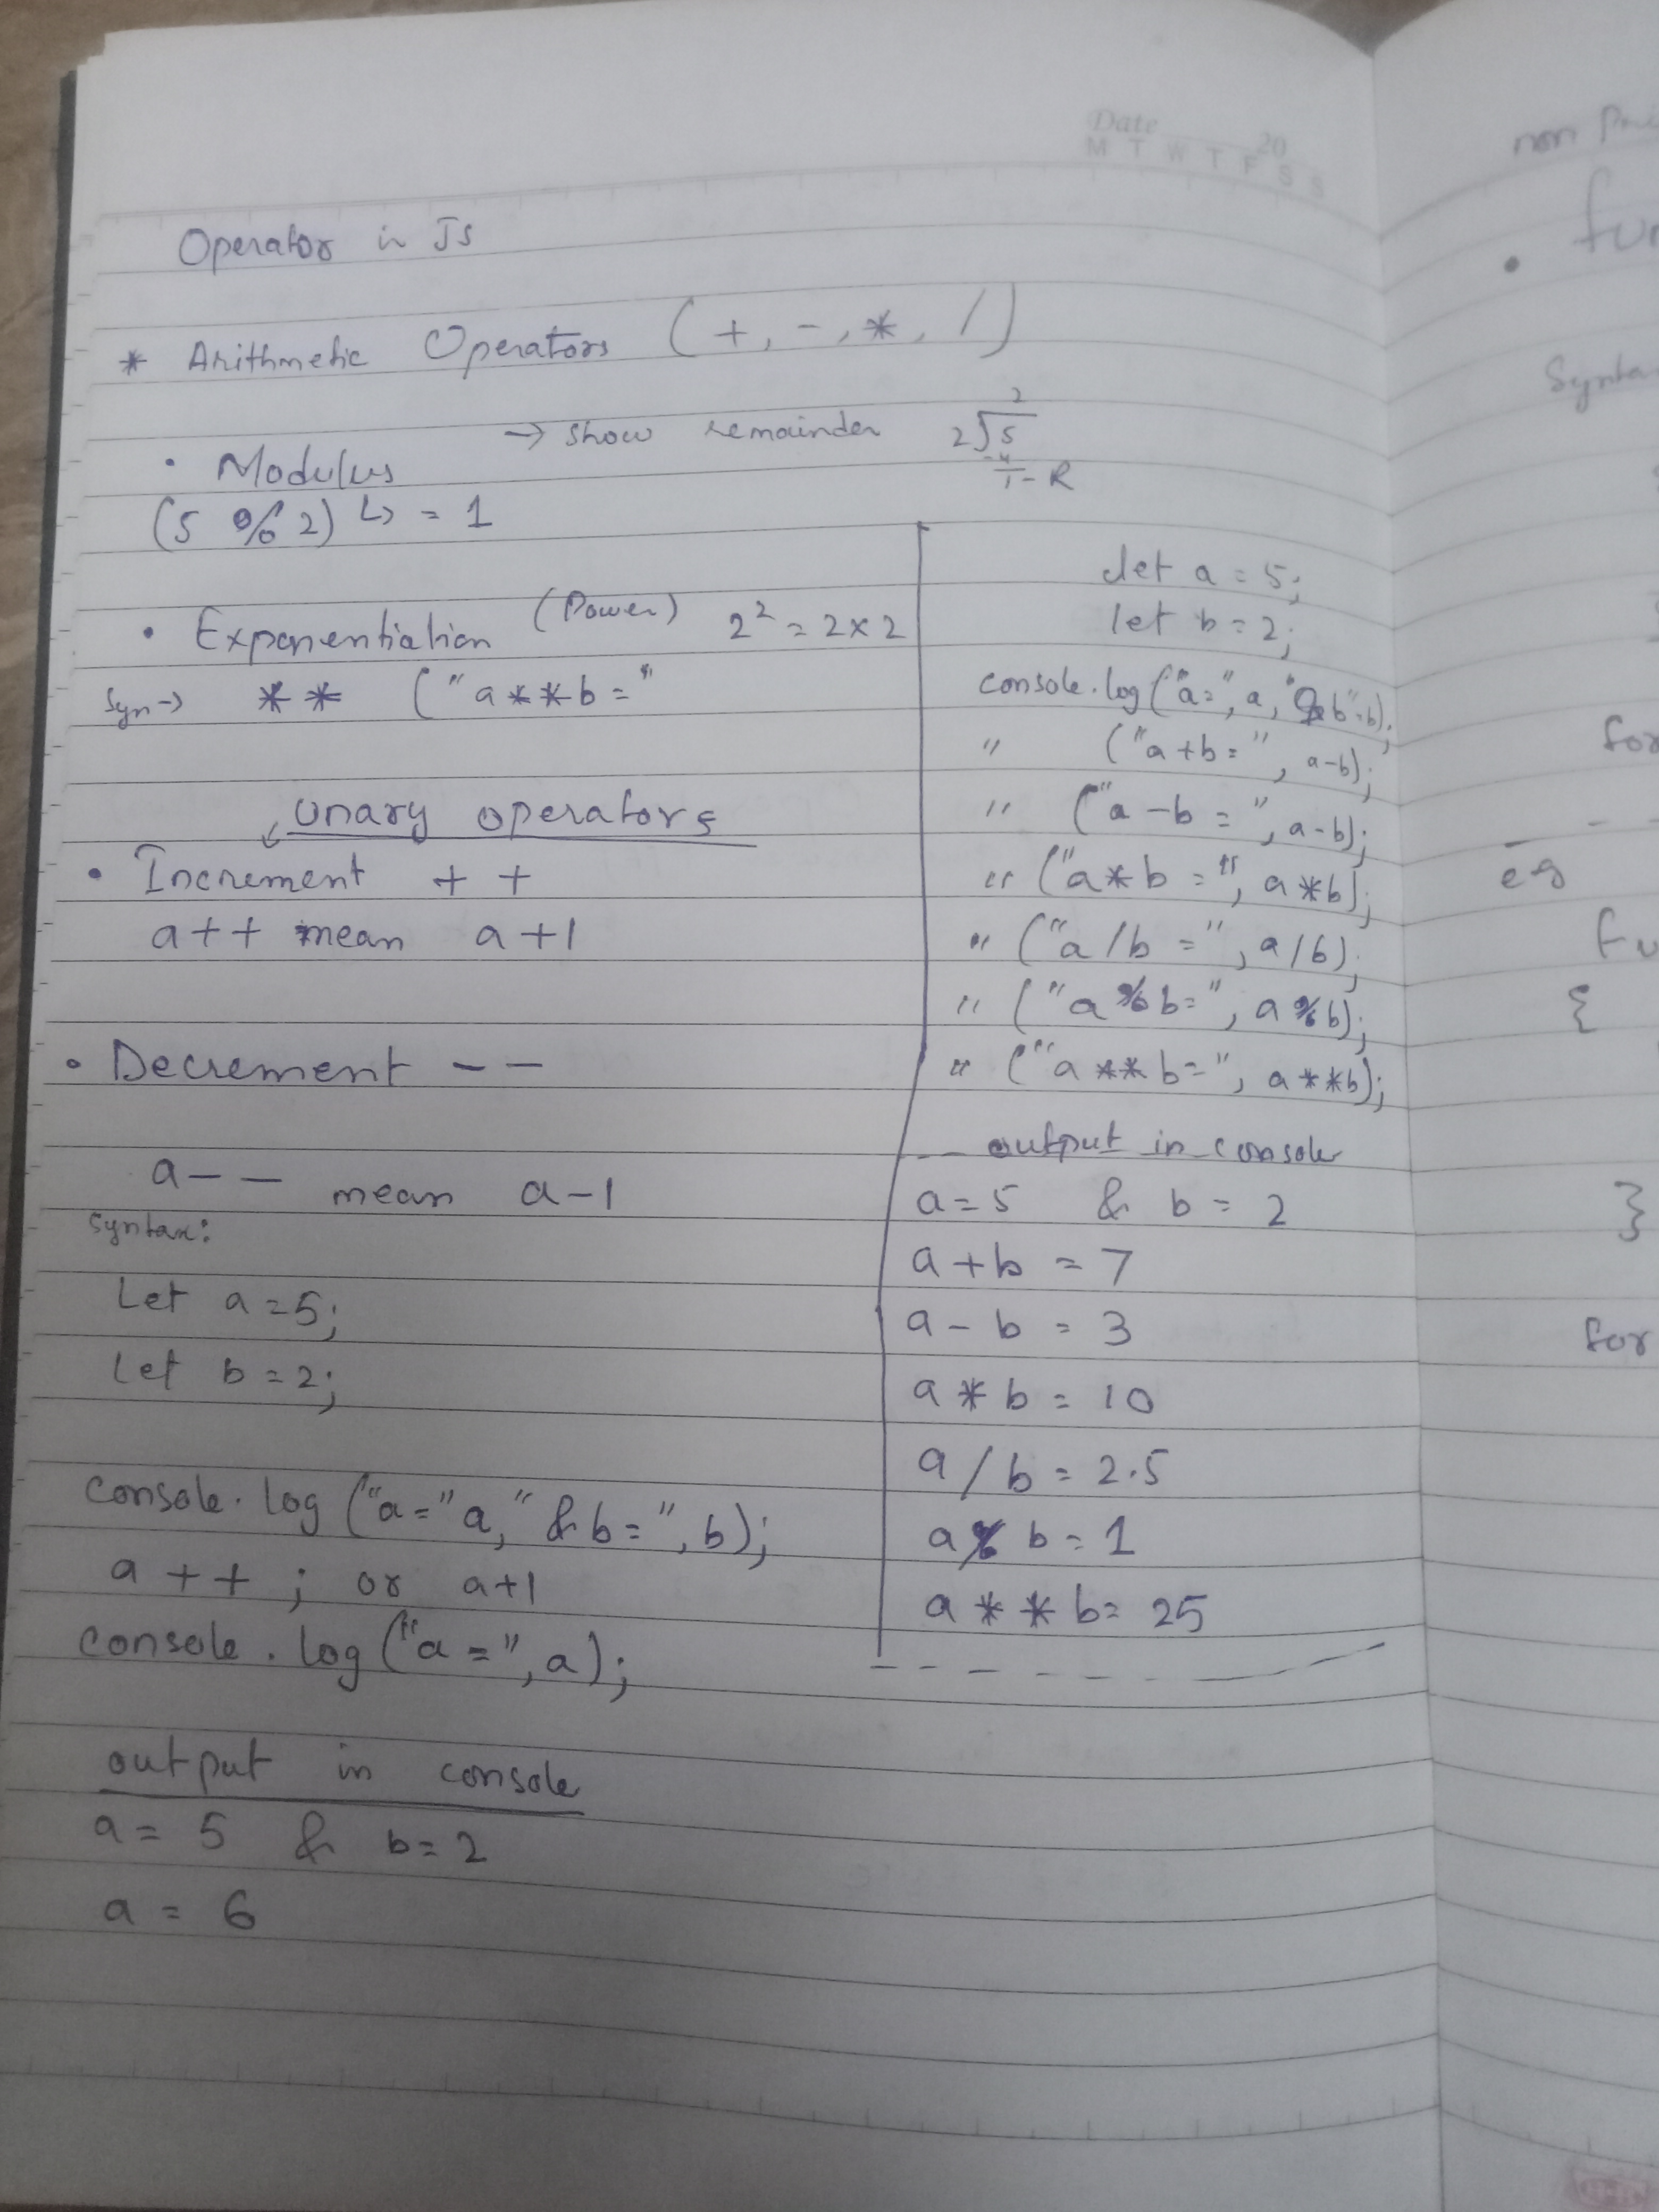 Date 20
M T W T F S S
Operator in Js
* Arithmetic Operators (+, -, *, /)
• Modulus → show remainder
(5 % 2) ↳ = 1
2
2√5
-4
1 - R
• Exponentiation (Power) 2² = 2×2
Syn → ** ("a**b="
Unary operators
• Increment ++
a++ mean a+1
• Decrement --
a-- mean a-1
Syntax:
Let a=5;
Let b=2;
console.log ("a="a, "&b=", b);
a++; or a+1
console.log ("a=", a);
output in console
a = 5 & b=2
a = 6
let a = 5;
let b = 2;
console.log ("a=", a, "& b"=b);
" ("a+b=", a-b);
" ("a-b=", a-b);
" ("a*b=", a*b);
" ("a/b=", a/b);
" ("a%b=", a%b);
" ("a**b=", a**b);
output in console
a=5 & b=2
a+b=7
a-b=3
a*b=10
a/b=2.5
a%b=1
a**b=25
non
•
for
eg
{
}
for